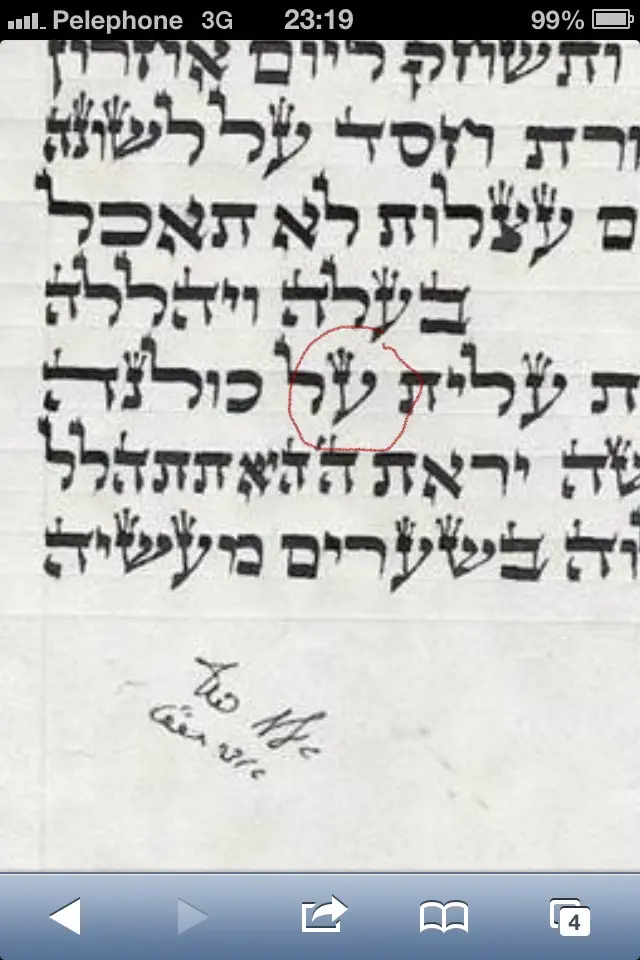 Pelephone 3G 23:19 99%
ותשחק ליום אחרון
ורת חסד על לשונה
ם עצלות לא תאכל
בעלה ויהללה
ת עלית על כולנה
שה יראת ה' היא תתהלל
וה בשערים מעשיה
4